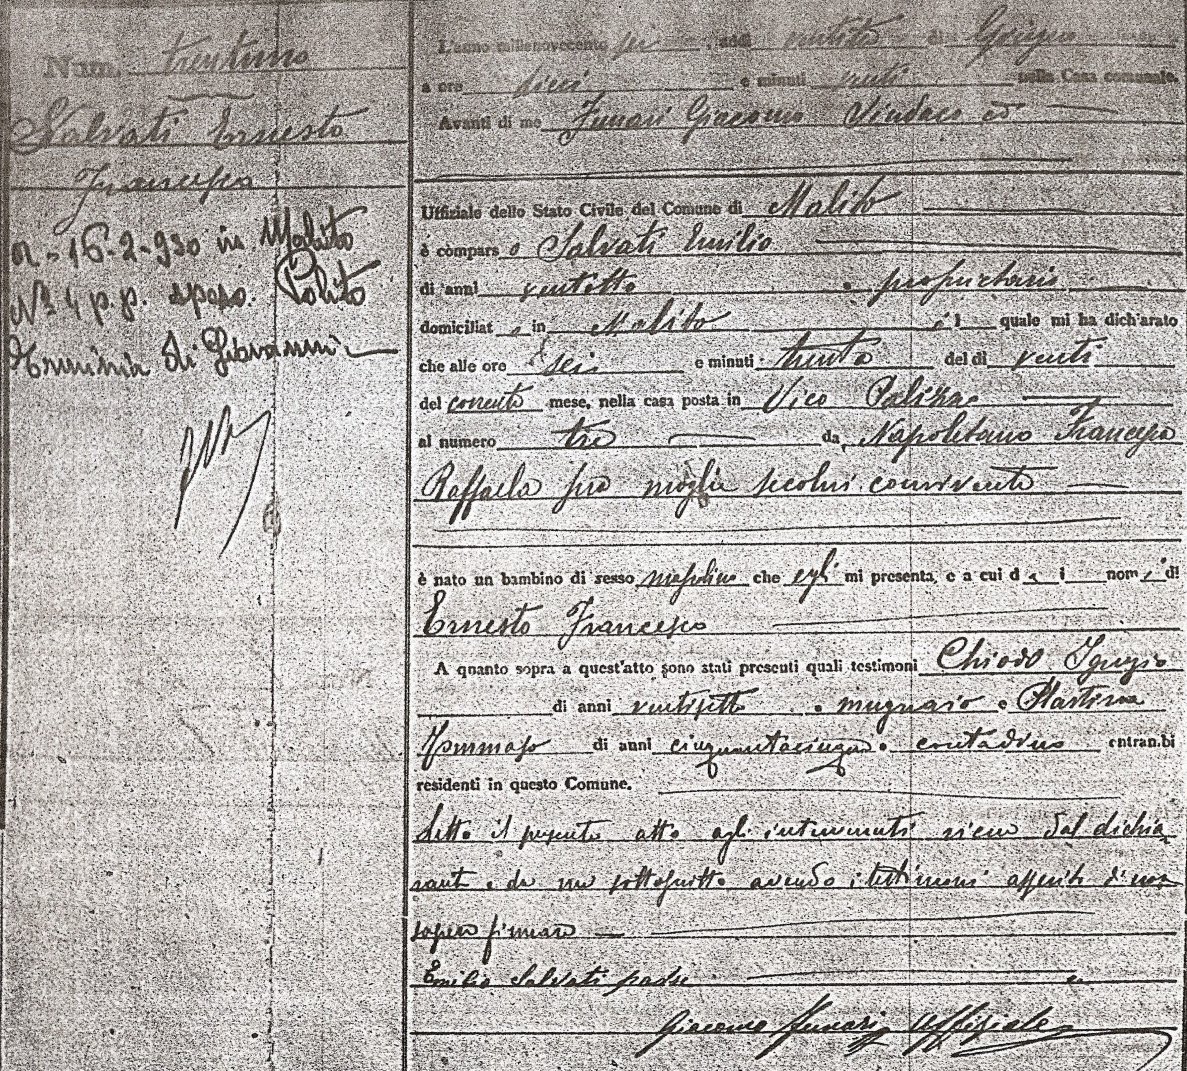 Num. trentuno
Salvati Ernesto
Francesco
A. 16-2-930 in Malito
N° 4 p. p. sposo Polito
Erminia di Giovanni
L'anno millenovecento sei, addì ventitre di Giugno
a ore dieci e minuti venti nella Casa comunale.
Avanti di me Funari Giacomo Sindaco ed
Uffiziale dello Stato Civile del Comune di Malito
è compars o Salvati Emilio
di anni ventotto, proprietario
domiciliat o in Malito, il quale mi ha dich'arato
che alle ore sei e minuti trenta del dì venti
del corrente mese, nella casa posta in Vico Palizza
al numero tre da Napoletano Francesca
Raffaela sua moglie secolui convivente
è nato un bambino di sesso mascolino che egli mi presenta, e a cui dà i nomi di
Ernesto Francesco
A quanto sopra a quest'atto sono stati presenti quali testimoni Chiodo Ignazio
di anni ventisette, mugnaio e Plastina
Tommaso di anni cinquantacinque, contadino entrambi
residenti in questo Comune.
Letto il presente atto agli intervenuti viene dal dichia
rante e da me sottoscritto avendo i testimoni asserito di non
saper firmare
Emilio Salvati padre
Giacomo Funari Uffiziale